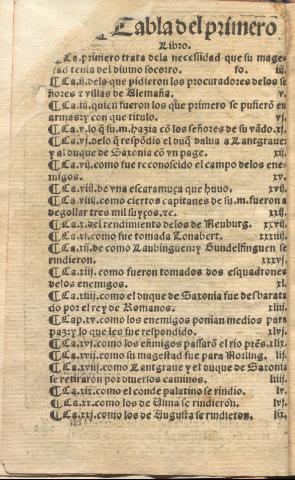 Tabla del primero
Libro.
¶ Ca. primero trata dela necessidad que su mage-
stad tenia del diuino socorro. fo. iij.
¶ Ca. ij. delo que pidieron los procuradores delos se
ñores z villas de Alemaña. v.
¶ Ca. iiij. quien fueron los que primero se pusierō en
armas: y con que titulo. vj.
¶ Ca. v. lo q̄ su. m. hazia cō los señores de su vādo. xj.
¶ Ca. vj. delo q̄ respōdio el duq̄ dalua a Lantgraue:
y al duque de Saxonia cō vn page. xij.
¶ Ca. vij. como fue reconoscido el campo delos ene-
migos. xv.
¶ Ca. viij. de vna escaramuça que huuo. xvij.
¶ Ca. viiij. como ciertos capitanes de su .m. fueron a
degollar tres mil suyços. zc. xxij.
¶ Ca. x. del rendimiento delos de Neuburg. xxvij.
¶ Ca. xj. como fue tomada Tonabert. xxxiiij.
¶ Ca. xij. de como Laubinguen z Gundelfinguen se
rindieron. xxxvj.
¶ Ca. xiij. como fueron tomados dos esquadrones
delos enemigos. xl.
¶ Ca. xiiij. como el duque de Saxonia fue desbarata
do por el rey de Romanos. xliij.
¶ Cap. xv. como los enemigos ponian medios para
paz: y lo que les fue respondido. xlvj.
¶ Ca. xvj. como los eñmigos passarō el rio prēs. xlix.
¶ Ca. xvij. como su magestad fue para Norling. lij.
¶ Ca. xviij. como Lantgraue y el duque de Saxonia
se retiraron por diuersos caminos. liiij.
¶ Ca. xix. como el conde palatino se rindio. lv.
¶ Ca. xx. como los de Vlma se rindieron. lix.
¶ Ca. xxj. como los de Augusta se rindieron. lix.